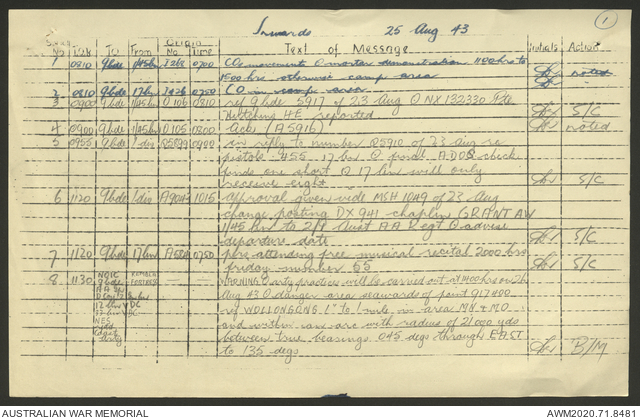 Inwards 25 Aug 43 1
Origin
No Time Text of Message Initials Action
1 0810 9 bde 1/45 bn I268 0700 COs movements O mortar demonstration 1100 hrs to
1500 hrs otherwise camp area noted
2 0810 9 bde 17 bn CO in camp area
3 0900 9 bde 1/45 bn O106 0810 ref 9 bde 5917 of 23 Aug O NX 132330 Pte
HE reported S/C
4 0900 9 bde 1/45 bn O105 0800 Ack (A5916) noted
5 0955 9 bde 1 div 0900 in reply to number Q5910 of 23 Aug re
pistols .455 17 bn O ADOS check
finds one short O 17 bn will only
receive eight S/C
6 1120 9 bde 1 div A9043 1015 approval given vide MSH 1049 of 23 Aug
change posting DX 941 chaplin GRANT AW
1/45 bn to 2/9 Aust AA Regt O advise
departure date S/C
7 1120 9 bde 17 bn 0750 attending free musical recital 2000 hrs
friday number 65 S/C
8 1130 NOIC KEMBLA
9 bde FORTRESS
WARNING O arty practice will be carried out at 1400 hrs on 26
Aug 43 O danger area seawards of point 917400
ref WOLLONGONG 1" to 1 mile in area MH & MO
and within arc with radius of 21000 yds
between true bearings 045 degs through EAST
to 135 degs B/M
AUSTRALIAN WAR MEMORIAL AWM2020.71.8481